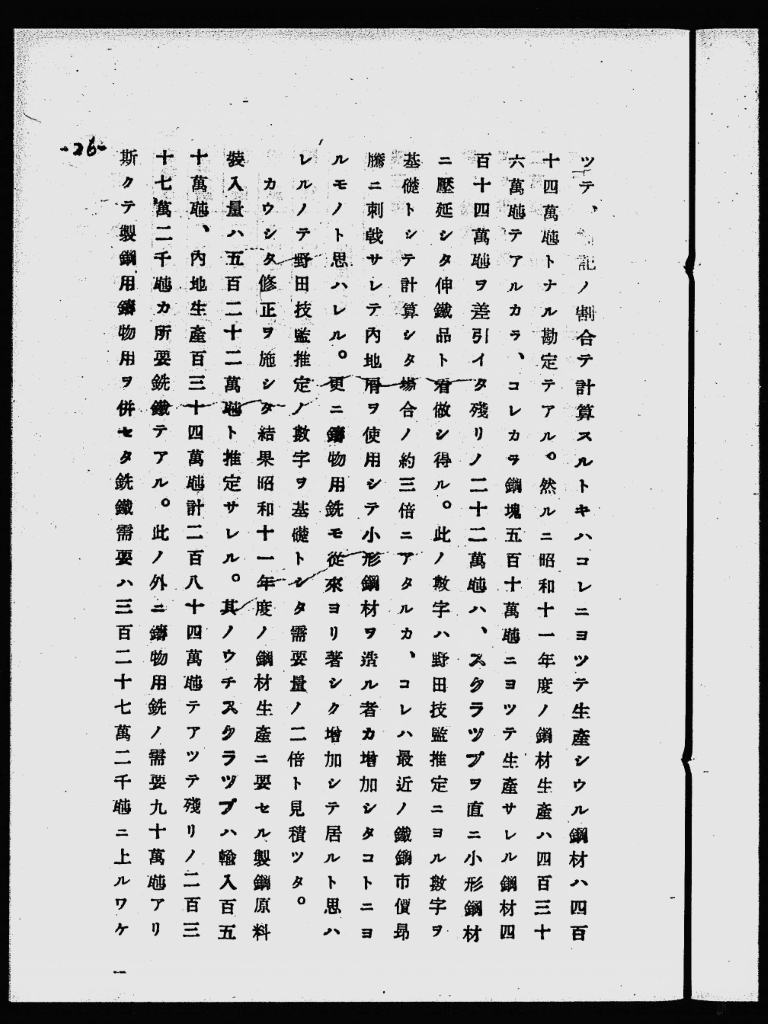 ツテ、記ノ割合テ計算スルトキハコレニヨツテ生產シウル鋼材ハ四百
十四萬瓲トナル勘定テアル。然ルニ昭和十一年度ノ鋼材生產ハ四百三十
六萬瓲テアルカラ、コレカラ鋼塊五百十萬瓲ニヨツテ生產サレル鋼材四
百十四萬瓲ヲ差引イタ殘リノ二十二萬瓲ハ、スクラツプヲ直ニ小形鋼材
ニ壓延シタ伸鐵品ト看做シ得ル。此ノ數字ハ野田技監推定ニヨル數字ヲ
基礎トシテ計算シタ場合ノ約三倍ニアタルカ、コレハ最近ノ鐵鋼市價昂
騰ニ刺戟サレテ內地屑ヲ使用シテ小形鋼材ヲ造ル者カ增加シタコトニヨ
ルモノト思ハレル。更ニ鑄物用銑モ從來ヨリ著シク增加シテ居ルト思ハ
レルノテ野田技監推定ノ數字ヲ基礎トシタ需要量ノ二倍ト見積ツタ。
カウシタ修正ヲ施シタ結果昭和十一年度ノ鋼材生產ニ要セル製鋼原料
裝入量ハ五百二十二萬瓲ト推定サレル。其ノウチスクラツプハ輸入百五
十萬瓲、內地生產百三十四萬瓲計二百八十四萬瓲テアツテ殘リノ二百三
十七萬二千瓲カ所要銑鐵テアル。此ノ外ニ鑄物用銑ノ需要九十萬瓲アリ
斯クテ製鋼用鑄物用ヲ併セタ銑鐵需要ハ三百二十七萬二千瓲ニ上ルワケ
-26-
一